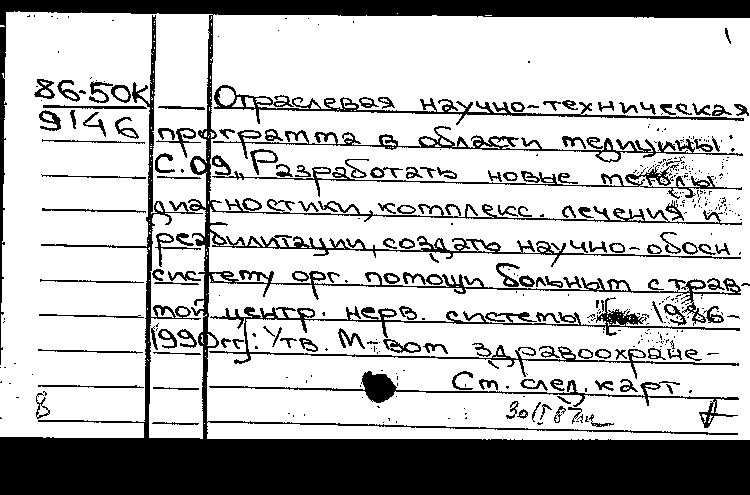 1
86-50К Отраслевая научно-техническая
9146 программа в области медицины:
С.09 „Разработать новые методы
диагностики, комплекс. лечения и
реабилитации, создать научно-обосн.
систему орг. помощи больным с трав-
мой центр. нерв. системы "[ 1986-
1990гг]: Утв. М-вом здравоохране-
См. след. карт.
8